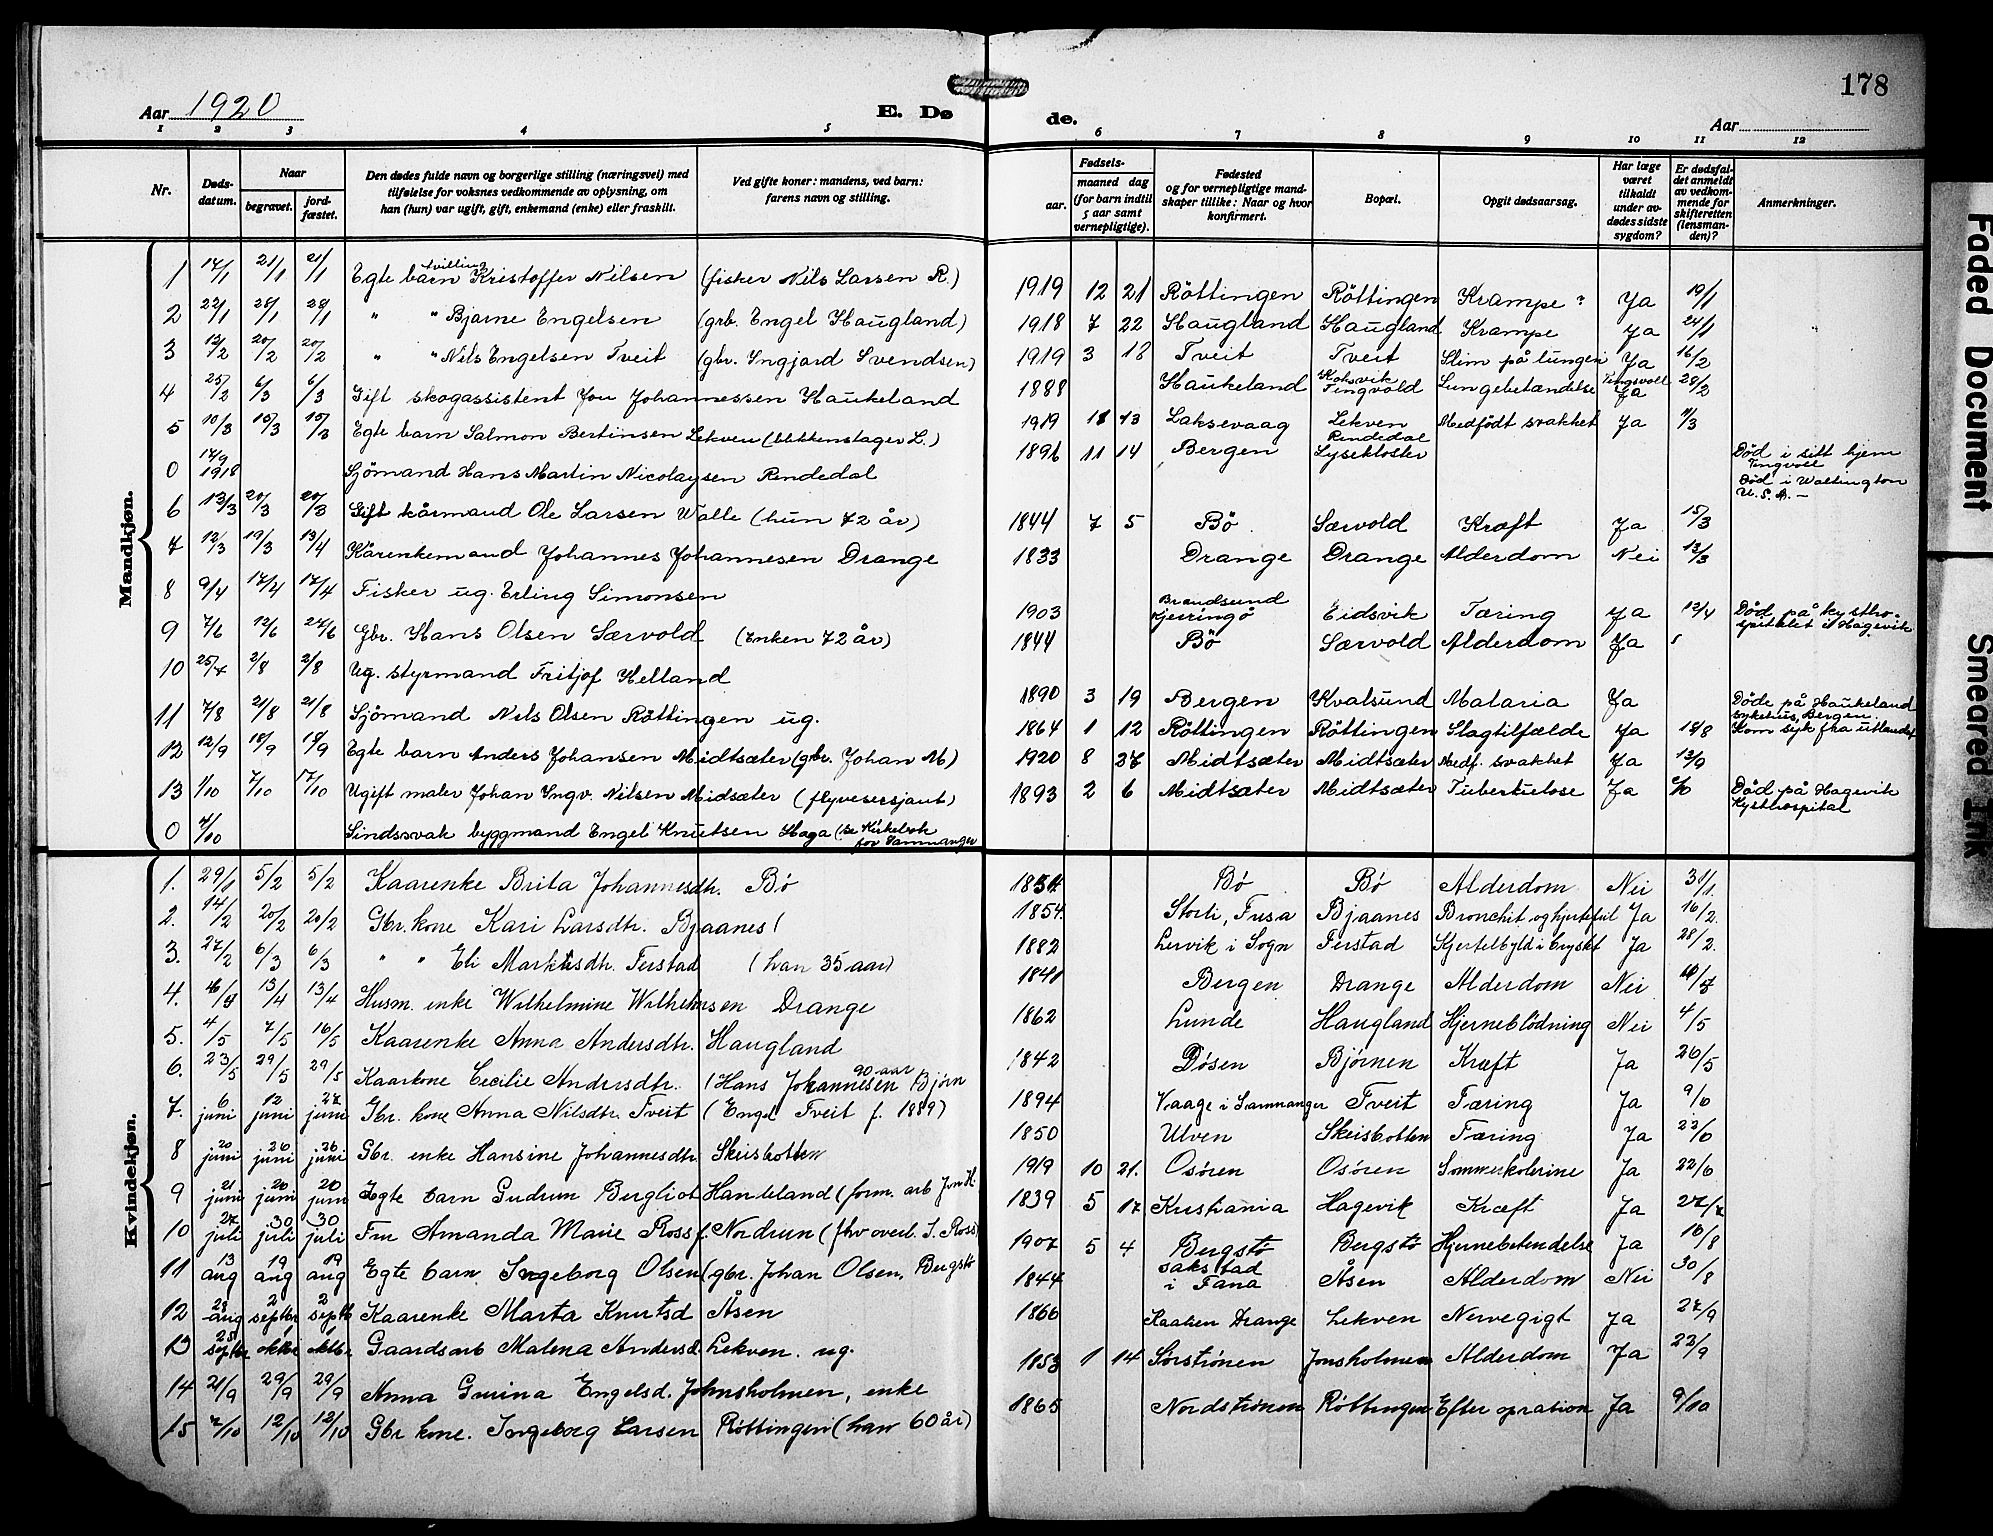 178
Aar 1920
E. Døde.
Aar
1 2 3 4 5 6 7 8 9 10 11 12
Nr.
Døds-datum.
Naar
begravet.
jord-fæstet.
Den dødes fulde navn og borgerlige stilling (næringsvei) med
tilføielse for voksnes vedkommende av oplysning, om
han (hun) var ugift, gift, enkemand (enke) eller fraskilt.
Ved gifte koner: mandens, ved barn:
farens navn og stilling.
Fødsels-
aar.
maaned dag
(for barn indtil
5 aar samt
vernepligtige).
Fødested
og for vernepligtige mand-
skaper tillike: Naar og hvor
konfirmert.
Bopæl.
Opgit dødsaarsag.
Har læge
været
tilkaldt
under av-
dødes sidste
sygdom?
Er dødsfal-
det anmeldt
av vedkom-
mende for
skifteretten
(lensman-
den)?
Anmerkninger.
Mandkjøn.
1 14/1 21/1 21/1 Egte barn tvilling Kristoffer Nilsen (fisker Nils Larsen R.) 1919 12 21 Röttingen Röttingen Krampe ? Ja 19/1
2 22/1 28/1 28/1 " " Bjarne Engelsen (grb. Engel Haugland) 1918 7 22 Haugland Haugland Krampe Ja 24/1
3 13/2 20/2 20/2 " " Nils Engelsen Tveit (gbr. Ingjard Svendsen) 1919 3 18 Tveit Tveit Slim på lungen Ja 16/2
4 25/2 6/3 6/3 Gift skogassistent Jon Johannessen Haukeland 1888 Haukeland Koksvik Tingvold Lungebetændelse Tingvoll Ja 28/2
5 10/3 15/3 15/3 Egte barn Salmon Bertinsen Lekven (blikkenslager L.) 1919 11 13 Laksevaag Lekven Medfödt svakhet Ja 11/3
0 17/9 1918 Sjömand Hans Martin Nicolaysen Rendedal 1896 11 14 Bergen Rendedal Lysekloster Död i sitt hjem Tingvoll
Död i Waltington U.S.A. -
6 13/3 20/3 20/3 Gift kårmand Ole Larsen Walle (hun 72 år) 1844 7 5 Bö Særvold Kræft Ja 15/3
7 12/3 19/3 13/4 Kårenkemand Johannes Johannesen Drange 1833 Drange Drange Alderdom Nei 13/3
8 9/4 17/4 17/4 Fisker ug. Erling Simonsen 1903 Brandsund Gjerringö Eidsvik Tæring Ja 12/4 Död på kystho-
spitalet i Hagevik
9 7/6 12/6 27/6 Gbr. Hans Olsen Særvold (Enken 72 år) 1844 Bö Særvold Alderdom Ja
10 25/4 2/8 2/8 Ug. styrmand Fritjof Helland 1890 3 19 Bergen Kvalsund Malaria Ja Döde på Haukeland
sykehus, Bergen.
Kom syk fra utlandet
11 7/8 21/8 21/8 Sjömand Nils Olsen Röttingen ug. 1864 1 12 Röttingen Röttingen Slagtilfælde Ja 18/8
12 12/9 18/9 18/9 Egte barn Anders Johansen Midtsæter (gbr. Johan M) 1920 8 27 Midtsæter Midtsæter Medf. svakhet Ja 13/9
13 1/10 7/10 17/10 Ugift maler Johan Ingv. Nilsen Midsæter (flyvesersjant) 1893 2 6 Midtsæter Midtsæter Tuberkulose Ja Död på Hagevik
Kysthospital
0 4/10 Sindssvak byggmand Engel Knutsen Haga (se Kirkebok
for Samnanger
Kvindekjøn.
1. 29/1 5/2 5/2 Kaarenke Brita Johannesdtr. Bö Bö Bö Alderdom Nei 31/1.
2. 14/2 20/2 20/2 Gbr. kone Kari Larsdtr. Bjaanes ( 1854. Storli, Fusa Bjaanes Bronchit og hjertefeil Ja 16/2.
3. 27/2 6/3 6/3 " " Eli Markusdtr. Ferstad (han 35 aar) 1882 Lervik i Sogn Ferstad Kjertelbyld i brystet Ja 28/2.
4. 13/4 13/4 Husm. enke Wilhelmine Wilhelmsen Drange 1841 Bergen Drange Alderdom Nei
5. 4/5 7/5 16/5 Kaarenke Anna Andersdtr. Haugland 1862 Lunde Haugland Hjerneblödning Nei 4/5
6. 23/5 29/5 29/5 Kaarkone Cecilie Andersdtr. (Hans Johannesen 90 aar Björn 1842 Døsen Bjørnen Kræft Ja 26/5
7. 6 juni 12 juni 27 juni Gbr. kone Anna Nilsdtr. Tveit (Engel Tveit f. 1889) 1894 Vaage i Samnanger Tveit Tæring Ja 9/6
8 20 juni 26 juni 26 juni Gbr. enke Hansine Johannesdtr. Skeisbotten 1850 Ulven Skeisbotten Tæring Ja 22/6
9 21 juni 26 juni 26 juni Egte barn Gudrun Bergliot Haukeland (form. arb Jon H. 1919 10 21. Osören Osören Sommerkolerine Ja 22/6
10 27 juli 30 juli 30 juli Fru Amanda Marie Ross f. Nordrum (fhv overl. S. Ross) 1839 5 17 Kristiania Hagevik Kræft Ja 27/7
11 13 aug 19 aug 19 aug Egte barn Ingeborg Olsen (gbr. Johan Olsen, Bergstö 1907 5 4 Bergstö Bergstö Hjernebetendelse Ja 16/8
12 28 aug 2 septbr 2 septb Kaarenke Marta Knutsd Åsen 1844 Sakstad i Fana Åsen Alderdom Nei 30/8
13 25 septbr 1 oktbr 1 oktbr Gaardsarb Malena Andersd Lekven. ug. 1866 Drange Lekven Nervegigt Ja 27/9
14 21/9 29/9 29/9 Anna Gurina Engelsd. Johnsholmen, enke 1853 1 14 Sörströnen Jonsholmen Alderdom Ja 22/9
15 7/10 12/10 12/10 Gbr kone. Ingeborg Larsen Röttingen (han 60 år) 1865 Nordströnen Röttingen Efter opration Ja 9/10
Faded Document
Smeared Ink